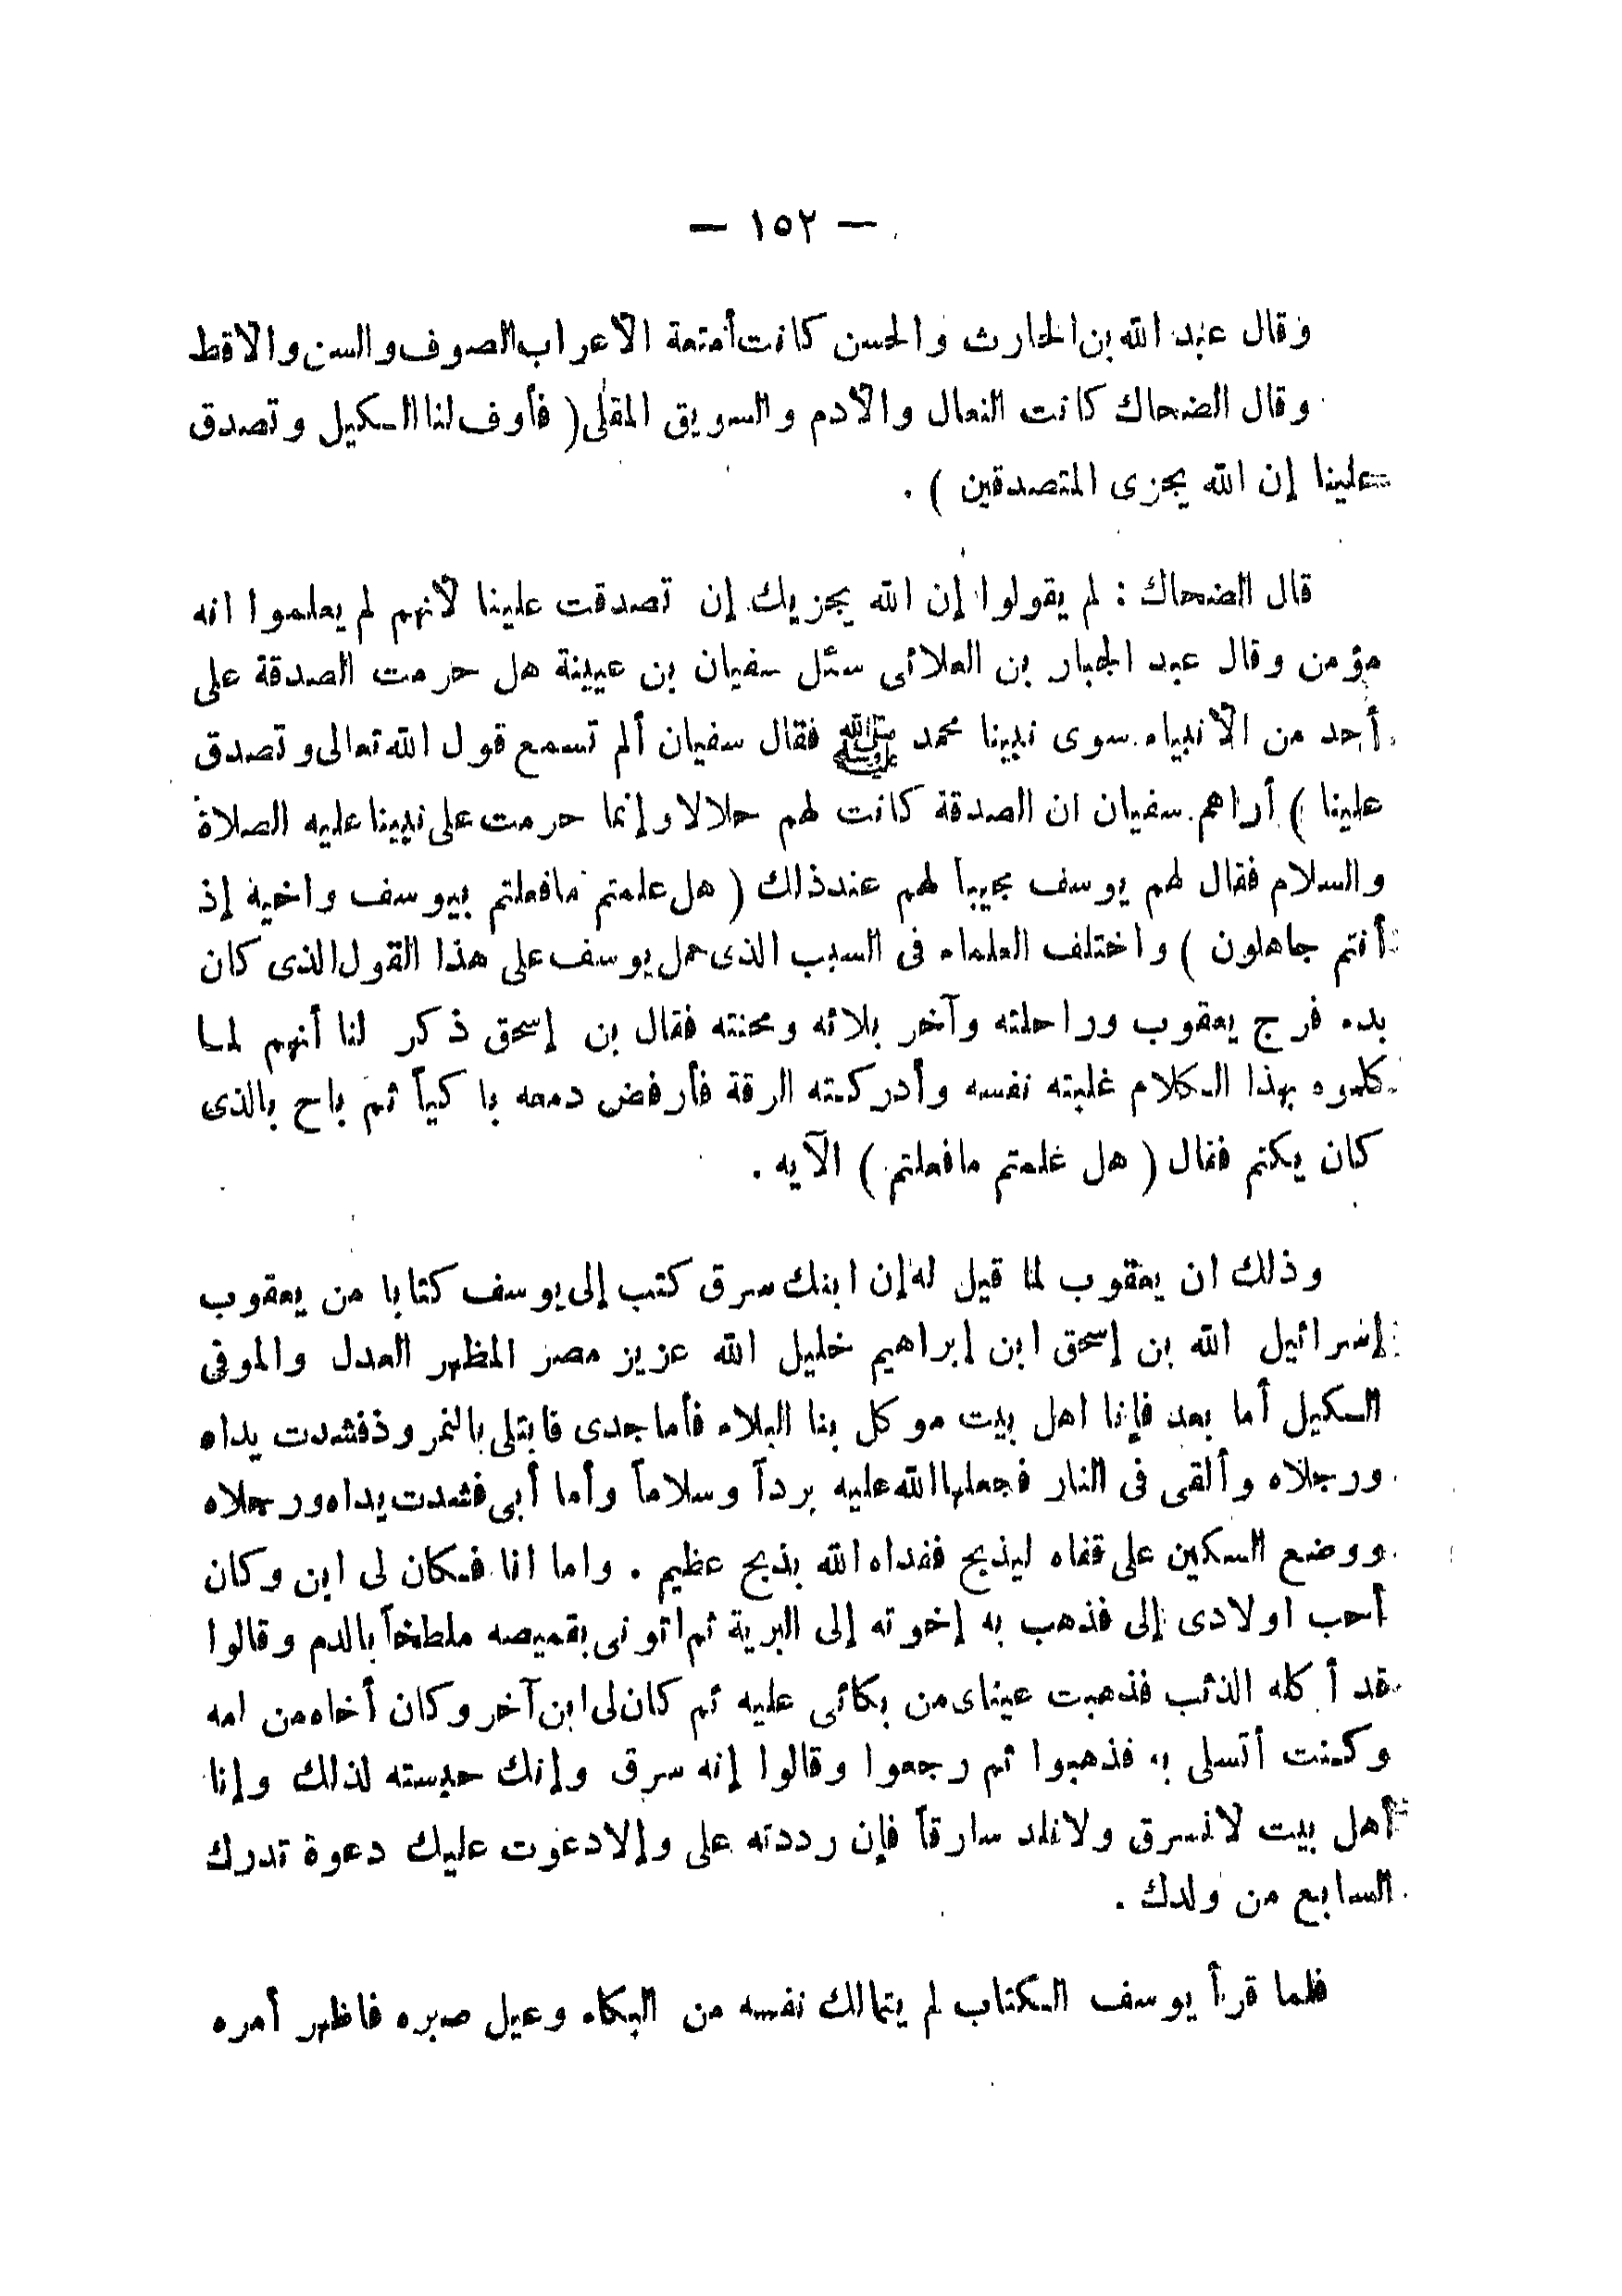 — ١٥٢ —
وقال عبد الله بن الحارث والحسن كانت أمتعة الأعراب الصوف والسن والاقط
وقال الضحاك كانت النعال والأدم والسويق المقلى ( فأوف لنا الكيل وتصدق
علينا إن الله يجزى المتصدقين ) .
قال الضحاك : لم يقولوا إن الله يجزيك إن تصدقت علينا لأنهم لم يعلموا انه
مؤمن وقال عبد الجبار بن العلائى سئل سفيان بن عيينة هل حرمت الصدقة على
أحد من الأنبياء سوى نبينا محمد ﷺ فقال سفيان ألم تسمع قول الله تعالى وتصدق
علينا ) أراهم سفيان ان الصدقة كانت لهم حلالا وإنما حرمت على نبينا عليه الصلاة
والسلام فقال لهم يوسف مجيباً لهم عند ذلك ( هل علمتم مافعلتم بيوسف واخيه إذ
أنتم جاهلون ) واختلف العلماء فى السبب الذى حمل يوسف على هذا القول الذى كان
بدء فرج يعقوب وراحلته وآخر بلائه ومحنته فقال بن إسحق ذكر لنا أنهم لما
كلموه بهذا الكلام غلبته نفسه وأدركته الرقة فأرفض دمعه باكياً ثم باح بالذى
كان يكتم فقال ( هل علمتم مافعلتم ) الآيه .
وذلك ان يعقوب لما قيل له إن ابنك سرق كتب إلى يوسف كتابا من يعقوب
إسرائيل الله بن إسحق ابن إبراهيم خليل الله عزيز مصر المظهر العدل والموفى
الكيل أما بعد فإنا اهل بيت موكل بنا البلاء فأما جدى فابتلى بالنمروذ فشدت يداه
ورجلاه وألقى فى النار فجعلها الله عليه برداً وسلاماً وأما أبى فشدت يداه ورجلاه
ووضع السكين على قفاه ليذبح ففداه الله بذبح عظيم . واما انا فكان لى ابن وكان
أحب اولادى إلى فذهب به إخوته إلى البرية ثم اتونى بقميصه ملطخاً بالدم وقالوا
قد أكله الذئب فذهبت عيناى من بكائى عليه ثم كان لى ابن آخر وكان أخاه من امه
وكنت أتسلى به فذهبوا ثم رجعوا وقالوا إنه سرق وإنك حبسته لذلك وإنا
أهل بيت لانسرق ولانلد سارقاً فإن رددته على وإلا دعوت عليك دعوة تدرك
السابع من ولدك .
فلما قرأ يوسف الكتاب لم يتمالك نفسه من البكاء وعيل صبره فاظهر أمره